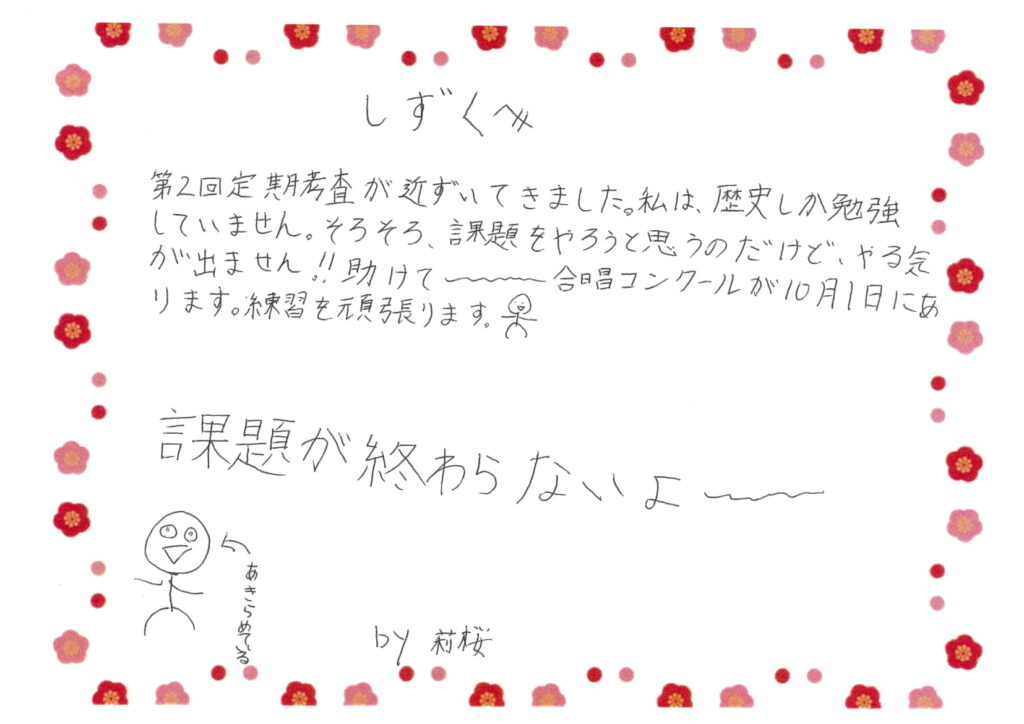 しずくへ
第2回定期考査が近ずいてきました。私は、歴史しか勉強
していません。そろそろ、課題をやろうと思うのだけど、やる気
が出ません!!助けて〜〜〜合唱コンクールが10月1日にあ
ります。練習を頑張ります。
課題が終わらないよ〜〜
あきらめてる
by 莉桜